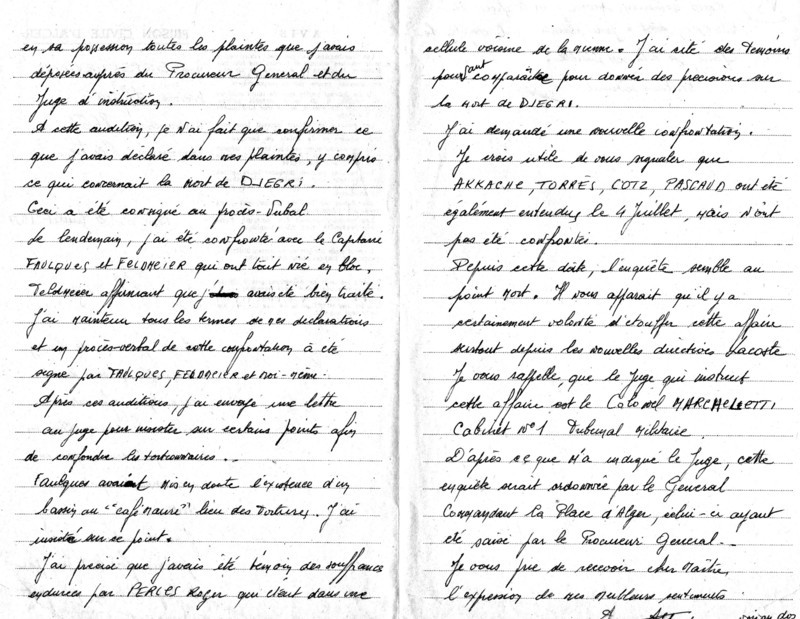 en sa possession toutes les plaintes que j'avais
déposées auprès du Procureur General et du
Juge d'instruction.
A cette audition, je n'ai fait que confirmer ce
que j'avais déclaré dans mes plaintes, y compris
ce qui concernait la mort de DJEGRI.
Ceci a été consigné au procès-Verbal
Le lendemain, j'ai été confronté avec le Capitaine
FAULQUES et FELDMEIER qui ont tout nié en bloc,
Feldmeier affirmant que j' avais été bien traité.
J'ai maintenu tous les termes de mes déclarations
et un procès-verbal de cette confrontation à été
signé par FAULQUES, FELDMEIER et moi-même.
Après ces auditions, j'ai envoyé une lettre
au Juge pour insister sur certains points afin
de confondre les tortionnaires.
Faulques avait mis en doute l'existence d'un
bassin au "café maure" lieu des Tortures. J'ai
insisté sur ce point.
J'ai précisé que j'avais été témoin des souffrances
endurées par PERLES Roger qui était dans une
cellule voisine de la mienne. J'ai cité des témoins
pouvant comparaître pour donner des precisions sur
la mort de DJEGRI.
J'ai demandé une nouvelle confrontation.
Je crois utile de vous signaler que
AKKACHE, TORRÈS, COTZ, PASCAUD ont été
également entendus le 4 Juillet, mais n'ont
pas été confrontés.
Depuis cette date, l'enquête semble au
point mort. Il vous apparait qu'il y a
certainement volonté d'étouffer cette affaire
surtout depuis les nouvelles directives Lacoste
Je vous rappelle, que le Juge qui instruit
cette affaire est le Colonel MARCHELLETTI
Cabinet N°1 Tribunal Militaire.
D'après ce que m'a indiqué le Juge, cette
enquête serait ordonnée par le General
Commandant la Place d'Alger, celui-ci ayant
été saisi par le Procureur General.
Je vous prie de recevoir cher Maître,
l'expression de mes meilleurs sentiments